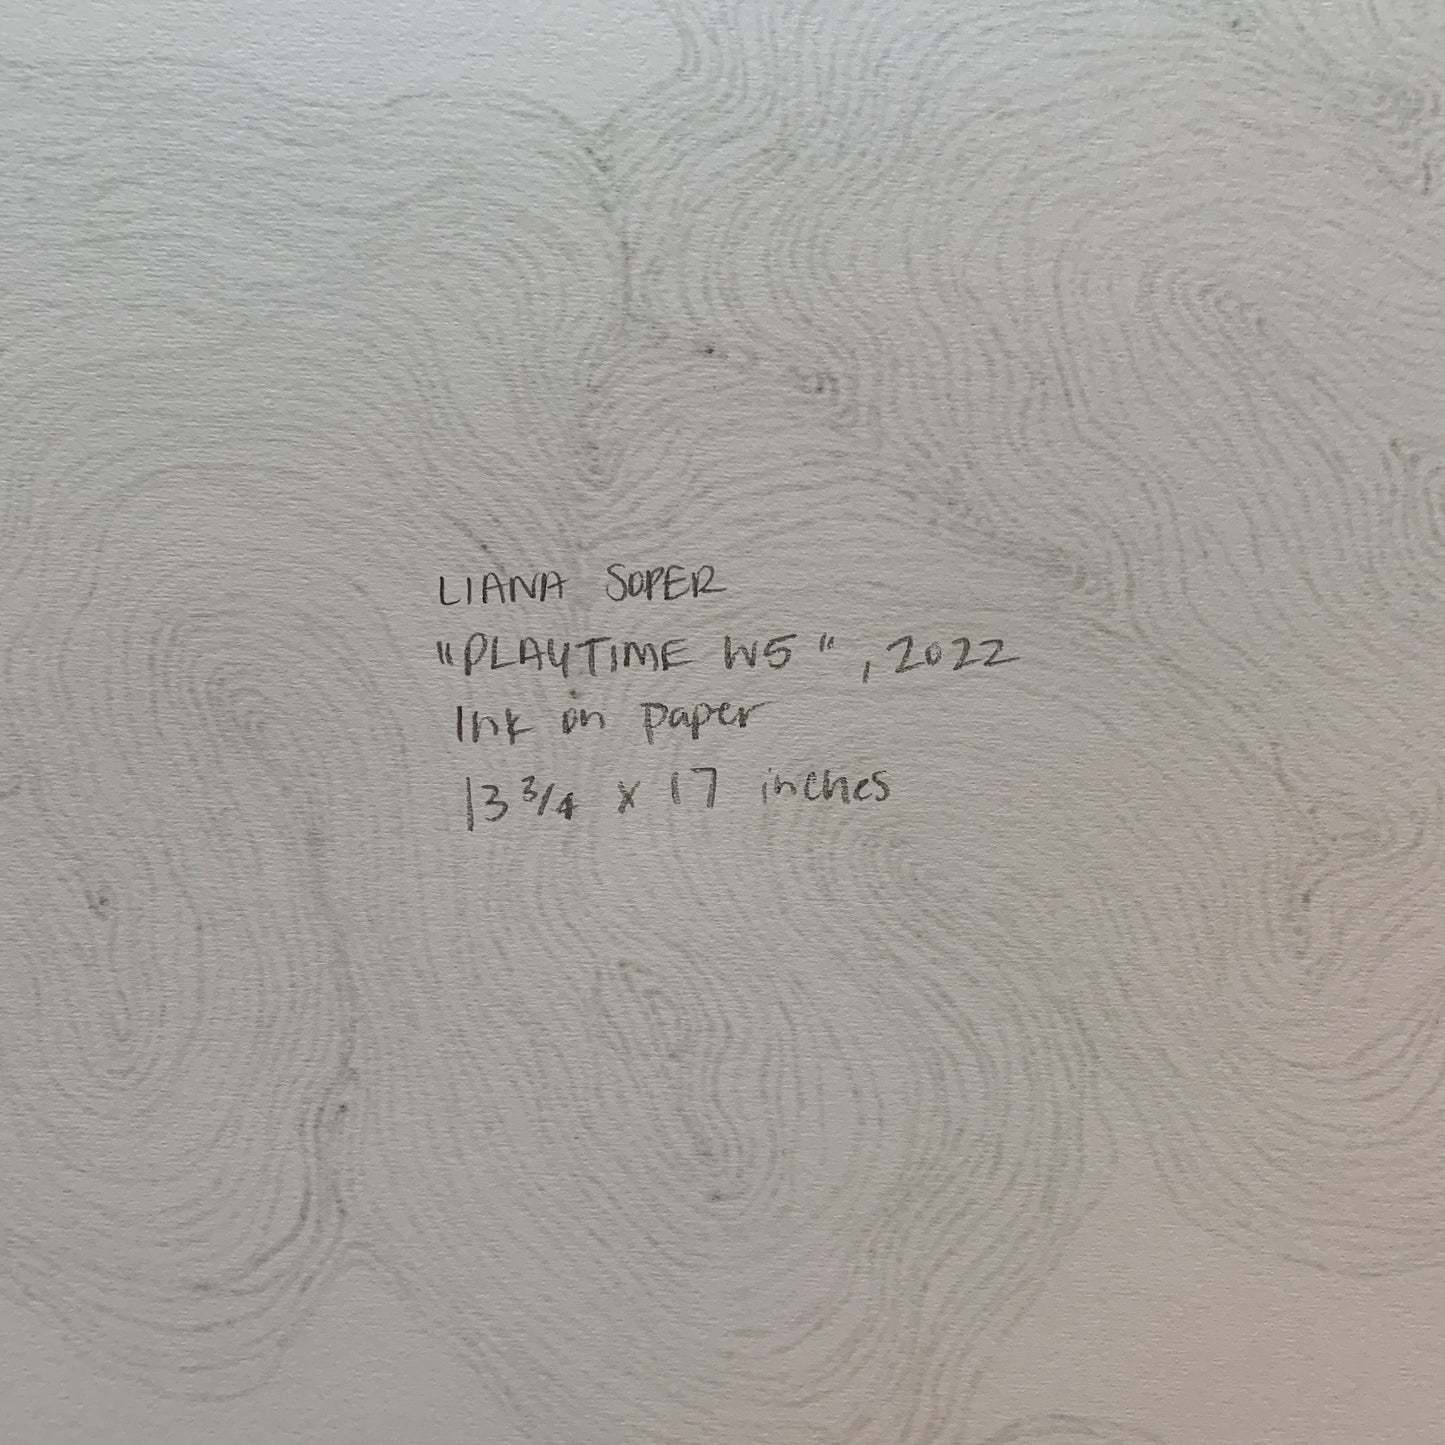 LIANA SOPER
"PLAYTIME W5", 2022
Ink on paper
13 3/4 x 17 inches